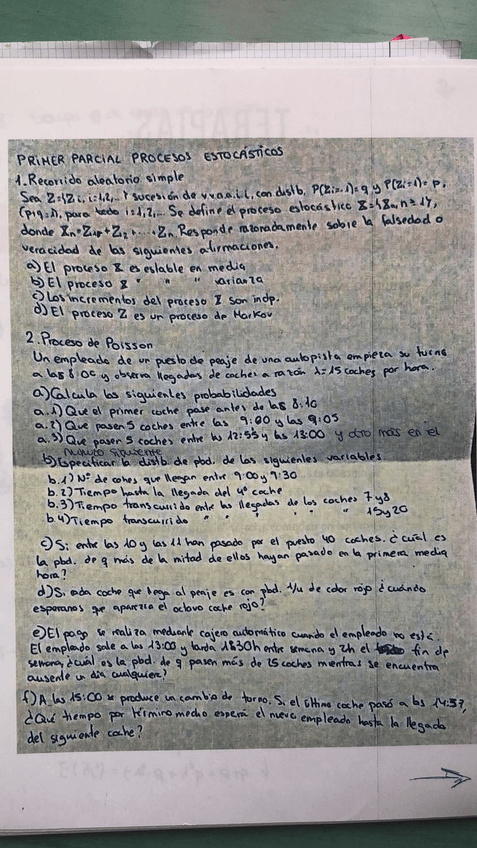 PRIMER PARCIAL PROCESOS ESTOCÁSTICOS
1. Recorrido aleatorio simple
Sea Z={Zi, i=1,2,... } sucesión de v.v.a.a.i.i., con distb. P(Zi=-1)=q y P(Zi=1)=p,
(p+q=1), para todo i=1,2,... Se define el proceso estocástico X={Xn, n≥1},
donde Xn=Z1+Z2+...+Zn. Responde razonadamente sobre la falsedad o
veracidad de las siguientes afirmaciones.
a) El proceso X es estable en media
b) El proceso X " " " varianza
c) Los incrementos del proceso X son indp.
d) El proceso Z es un proceso de Markov
2. Proceso de Poisson
Un empleado de un puesto de peaje de una autopista empieza su turno
a las 8:00 y observa llegadas de coches a razón λ=15 coches por hora.
a) Calcula las siguientes probabilidades
a.1) Que el primer coche pase antes de las 8:10
a.2) Que pasen 5 coches entre las 9:00 y las 9:05
a.3) Que pasen 5 coches entre las 12:55 y las 13:00 y otro más en el
minuto siguiente
b) Especificar la distb. de pbd. de las siguientes variables
b.1) Nº de cohes que llegan entre 9:00 y 9:30
b.2) Tiempo hasta la llegada del 4º coche
b.3) Tiempo transcurrido entre las llegadas de los coches 7 y 8
b.4) Tiempo transcurrido " " " " " 15 y 20
c) Si entre las 10 y las 11 han pasado por el puesto 40 coches. ¿cuál es
la pbd. de q más de la mitad de ellos hayan pasado en la primera media
hora?
d) Si cada coche que llega al peaje es con pbd. 1/4 de color rojo ¿cuándo
esperamos que aparezca el octavo coche rojo?
e) El pago se realiza mediante cajero automático cuando el empleado no está.
El empleado sale a las 13:00 y tarda 1:30h entre semana y 2h el fin de
semana, ¿cuál es la pbd. de q pasen más de 25 coches mientras se encuentra
ausente un día cualquiera?
f) A las 15:00 se produce un cambio de turno. Si el último coche pasó a las 14:57,
¿Qué tiempo por término medio espera el nuevo empleado hasta la llegada
del siguiente coche?